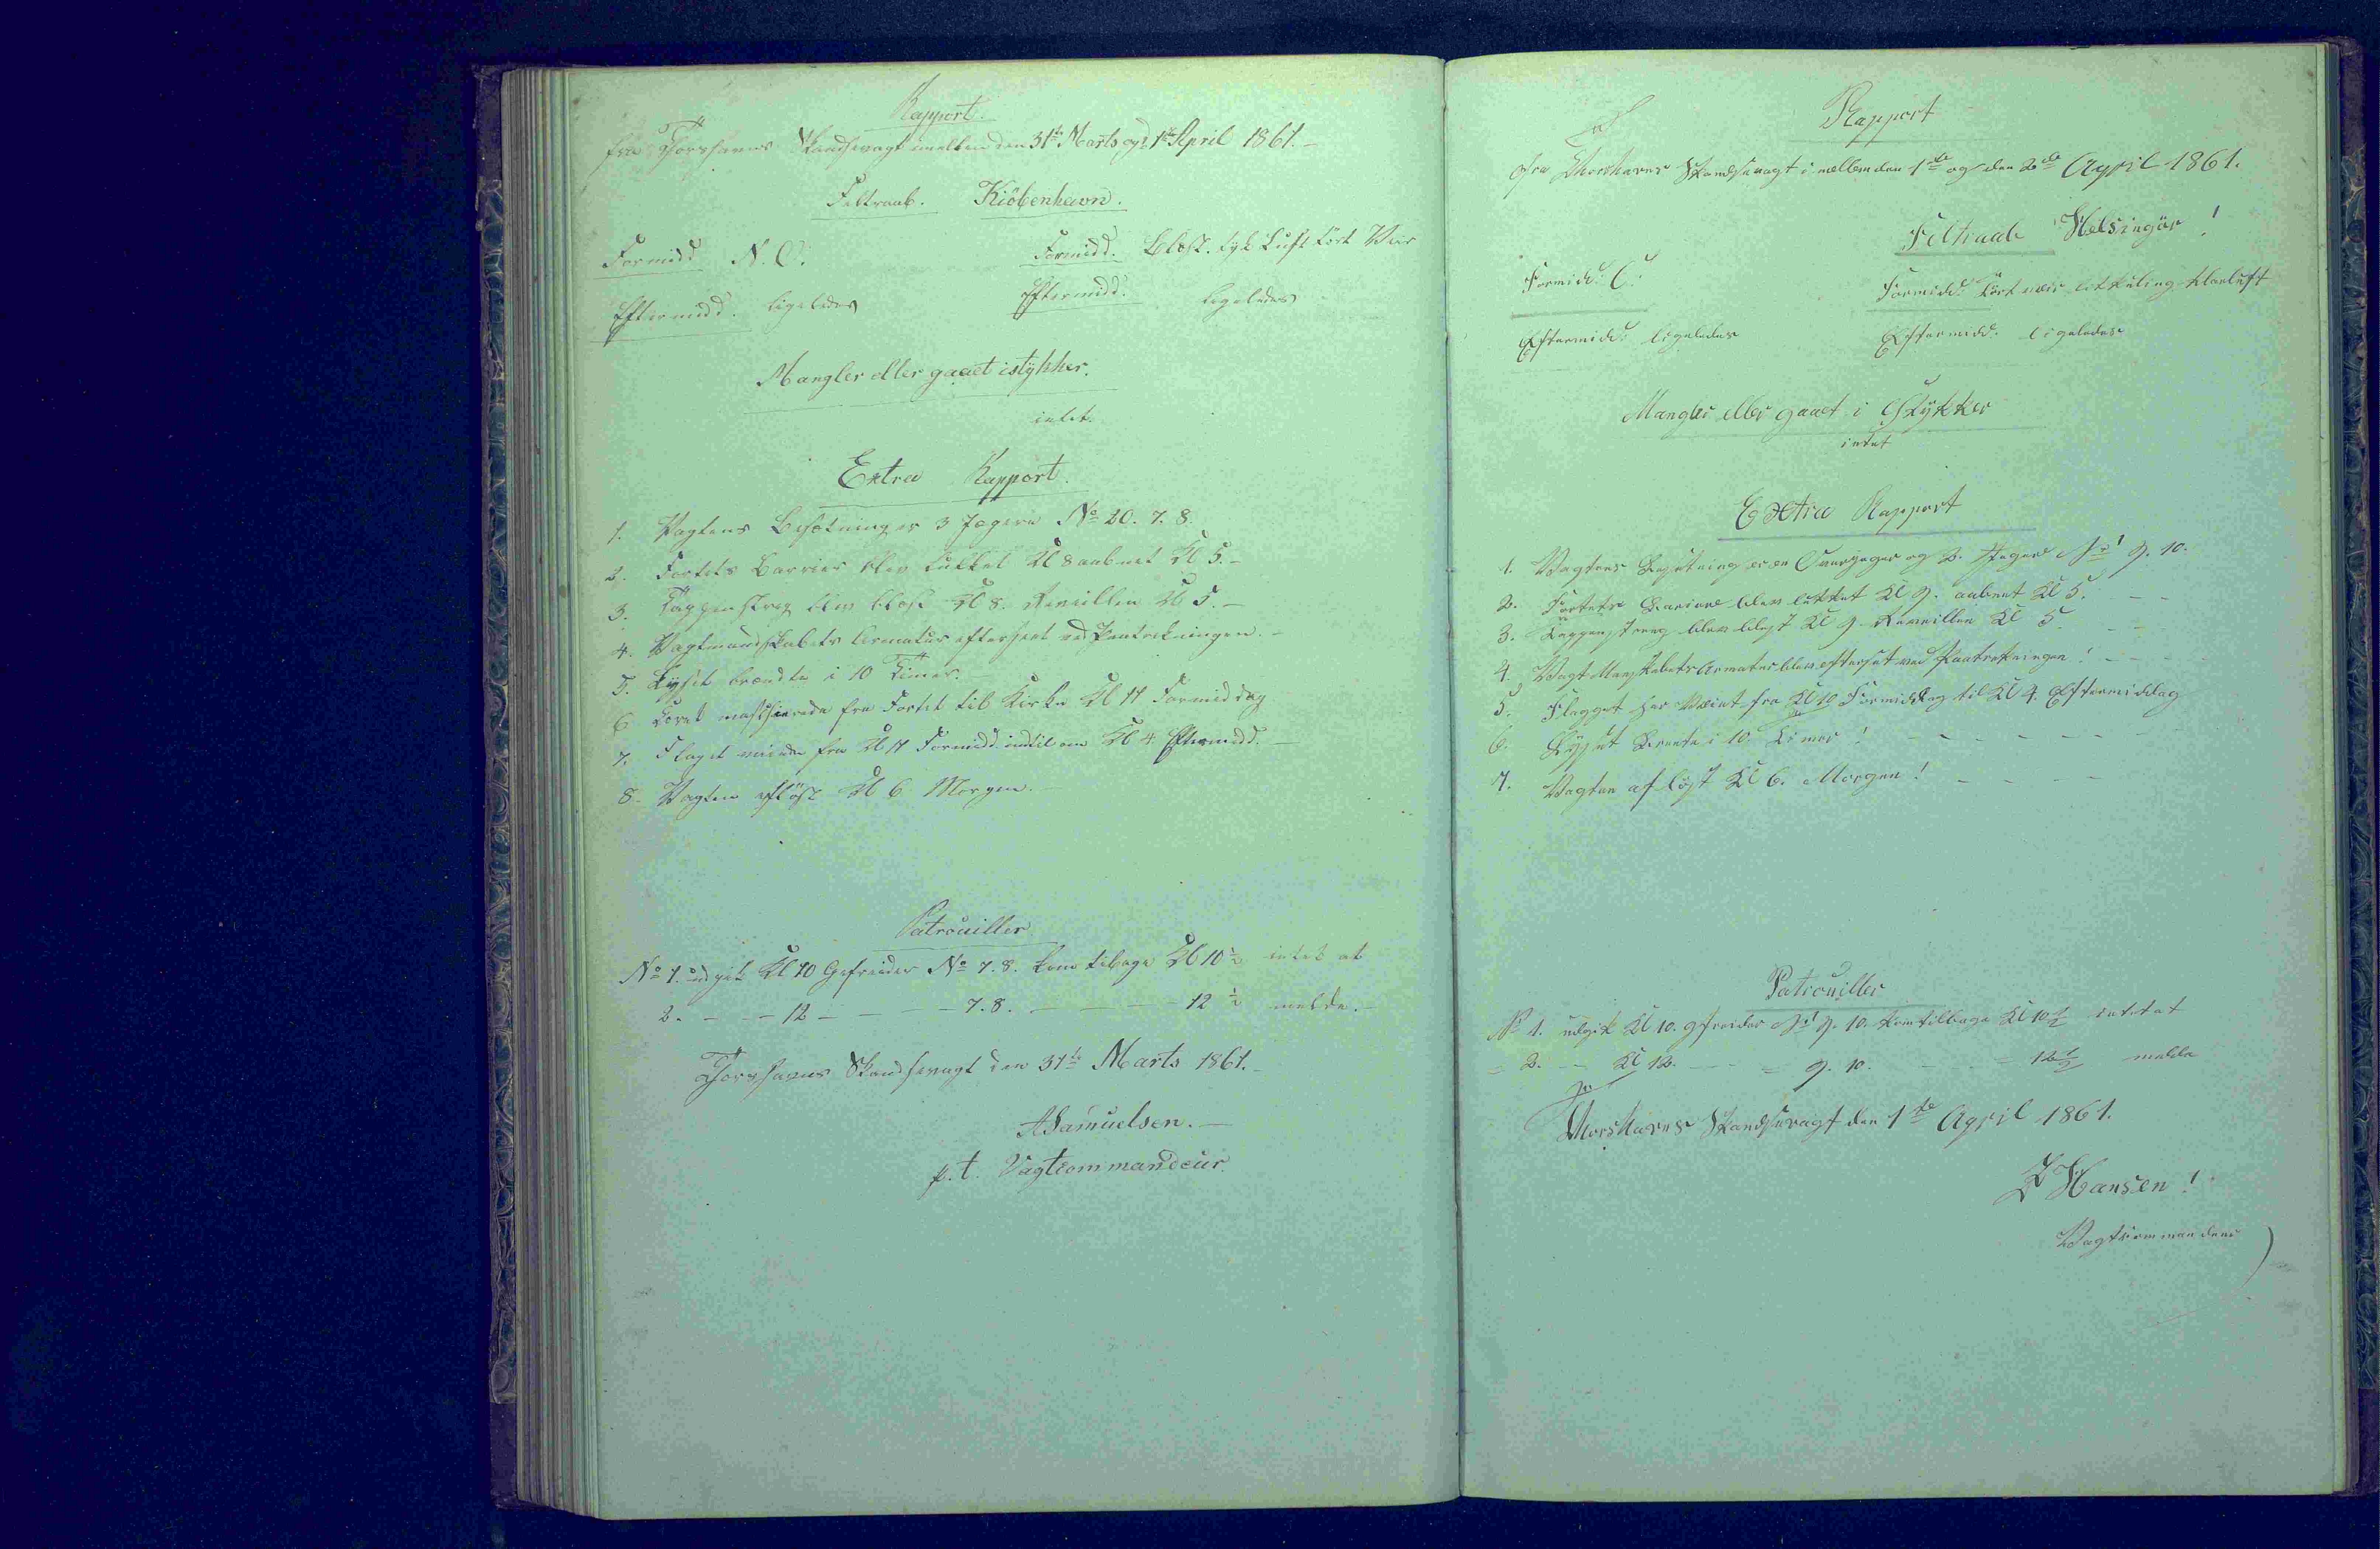 Rapport.
fra Thorshavns Skandsevagt imellem den 31te Marts og 1ste April 1861.-
Feltraab. Kiöbenhavn.
Formidd N.O. Formidd. Blæst. tyk Luft tört Veir
Eftermidd. ligeledes Eftermidd. ligeledes
Mangler eller gaaet istÿkker.
intet.
Extra Rapport.
1. Vagtens Besætning er 3 Jægere No 20. 7. 8.
2. Fortets Barrier blev lukket Kl 8 aabnet Kl 5.-
3. Tappenstreg blev blæst Kl 8. Reveillen Kl 5.-
4. Vagtmandskabets Armatur efterseet ved Paatrækningen.-
5. Lyset brændte i 10 Timer.
6. Coret marscherede fra Fortet til Kirke Kl 11 Formiddag
7. Flaget vaiede fra Kl 11 Formidd. indtil om Kl 4 Eftermidd.-
8. Vagten aflöst Kl 6 Morgen.-
Patrouiller
No 1. udgik Kl 10 Gefreider No 7.8. kom tilbage Kl 10½ intet at
2. - - 12 - - - 7.8. - - - 12½ melde.-
Thorshavns Skandsevagt den 31te Marts 1861.-
ASamuelsen.-
p.t. Vagtcommandeur.
Rapport
fra Thorshavns Skandsevagt i mellem den 1ste og den 2den April 1861.
Feltraab Helsingör!
Formidd. O. Formidd. tört veir let kuling klar luft
Eftermidd. ligeledes Eftermidd. ligeledes
Mangler eller gaaet i Stÿkker
intet
Extra Rapport
1. Vagtens Besætning er en Overjæger og 2. Jægere No 9. 10.
2. Fortets Bariere blev lukket Kl 9. aabnet Kl 5. - -
3. Tappenstreg blev blæst Kl 9 Reveillen Kl 5. - -
4. Vagt Manskabets Armatur blev efterset ved Paatrækningen! - -
5. Flagget har Vaiet fra Kl 10 Formiddag til Kl 4. Eftermiddag
6. Lyset Brente i 10 Timer! - - - - - - -
7. Vagten aflöst Kl 6. Morgen! - - - -
Patrouiller
No 1. udgik Kl 10. gfreider No 9. 10. kom tilbage Kl 10½ intet at
= 2. - - Kl 12. - - = 9. 10. - - = 12½ melde
Thorshavns Skandsevagt den 1ste April 1861.
Hansen!
Vagtcommandeur